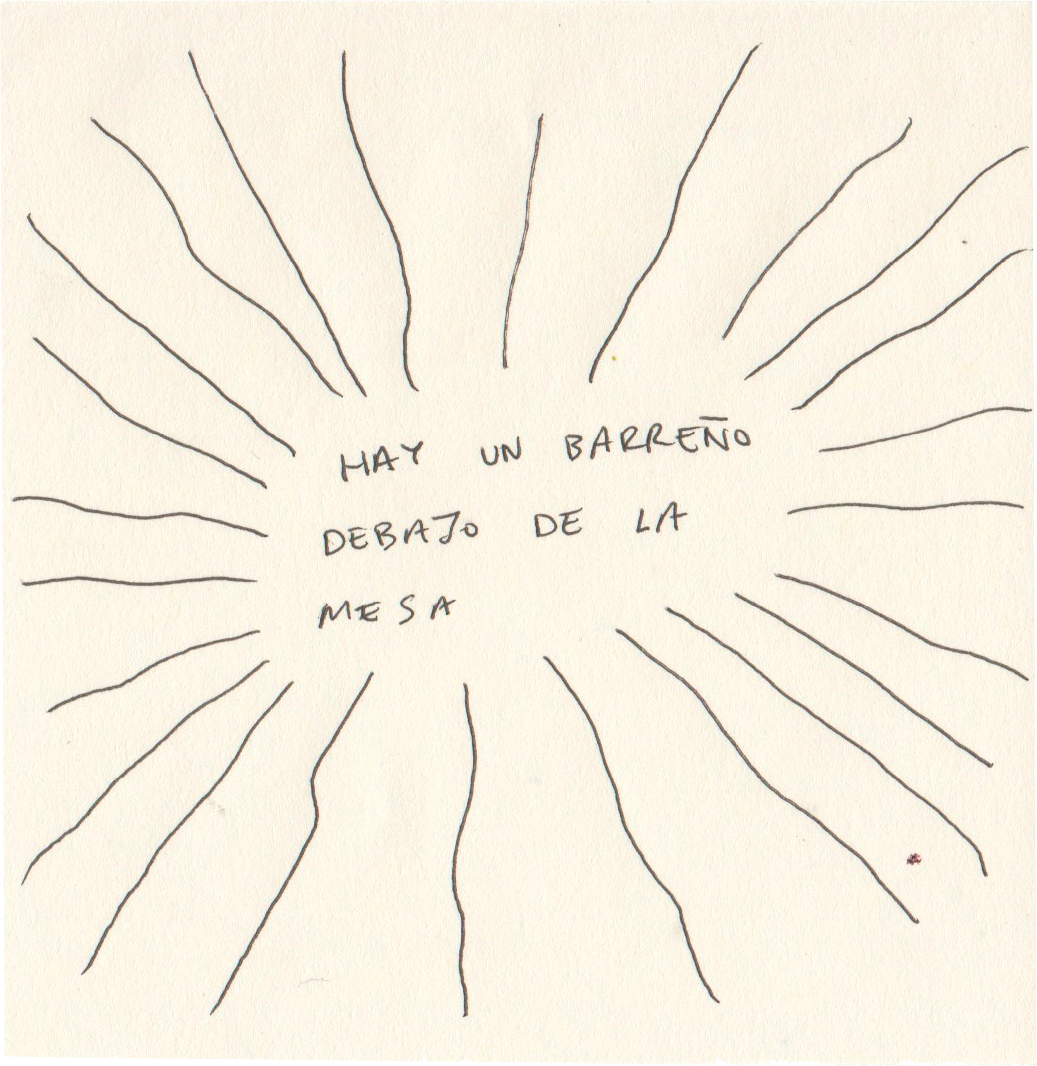 HAY UN BARREÑO
DEBAJO DE LA
MESA